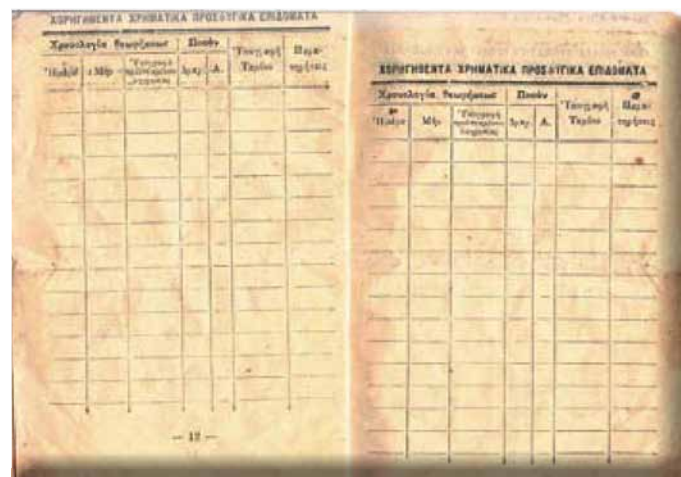 ΧΟΡΗΓΗΘΕΝΤΑ ΧΡΗΜΑΤΙΚΑ ΠΡΟΣΦΥΓΙΚΑ ΕΠΙΔΟΜΑΤΑ
Χρονολογία θεωρήσεως Ποσὸν Ὑπογραφὴ Ταμίου Παρατηρήσεις
Ἡμέρα Μὴν Ὑπογραφὴ Δραχ. Λ.
— 12 —
ΧΟΡΗΓΗΘΕΝΤΑ ΧΡΗΜΑΤΙΚΑ ΠΡΟΣΦΥΓΙΚΑ ΕΠΙΔΟΜΑΤΑ
Χρονολογία θεωρήσεως Ποσὸν Ὑπογραφὴ Ταμίου Παρατηρήσεις
Ἡμέρα Μὴν Ὑπογραφὴ Δραχ. Λ.